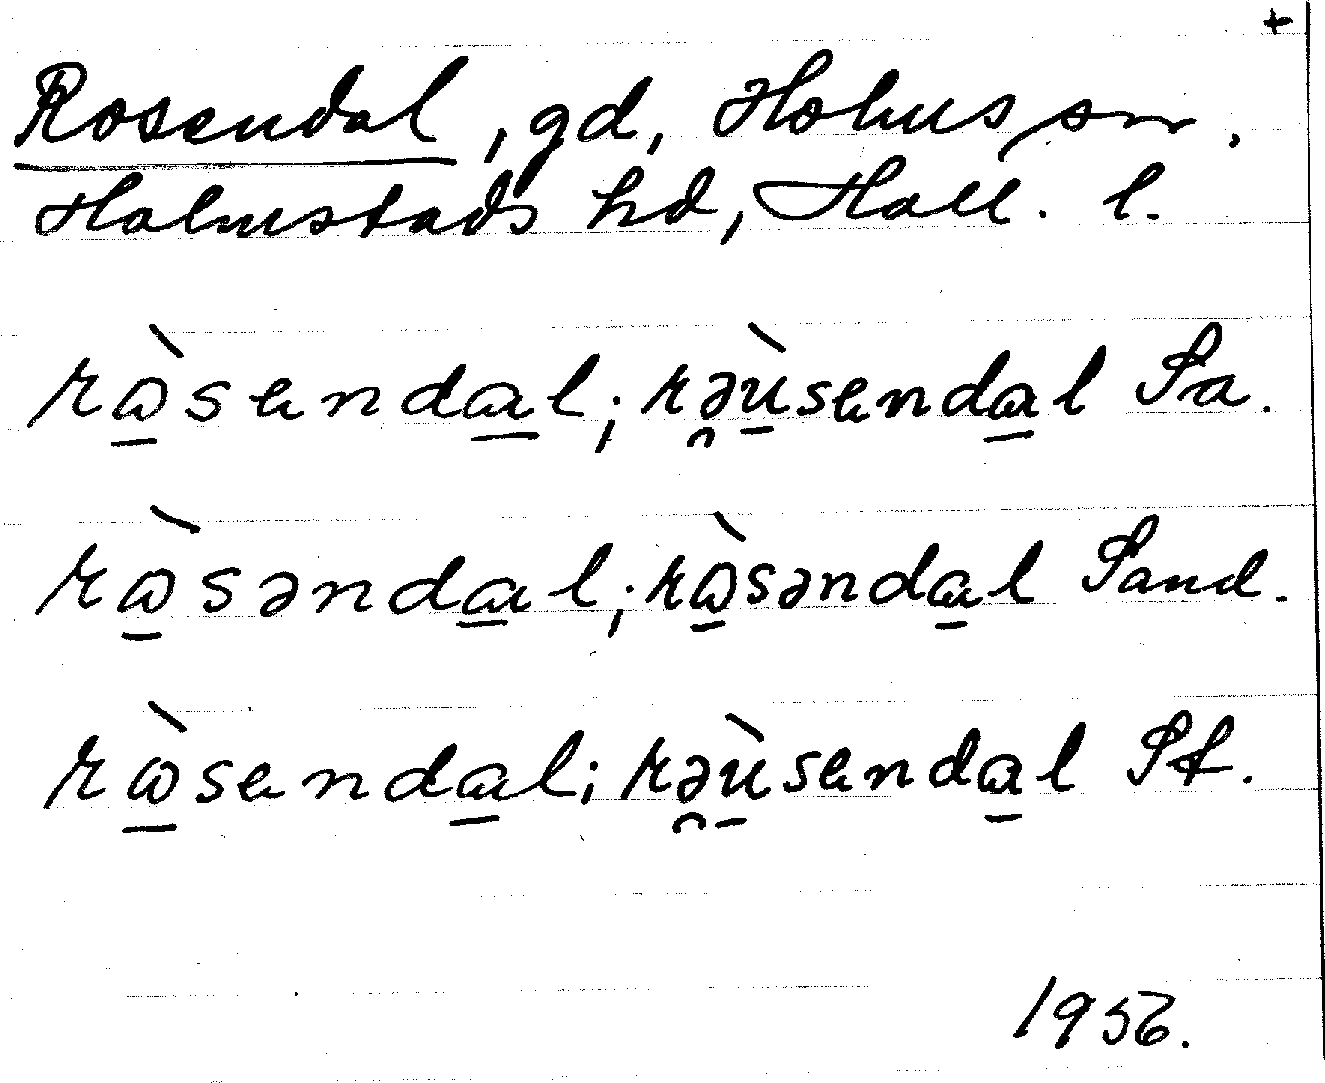 +
Rosendal, gd, Holms sn,
Halmstads hd, Hall. l.
rɷ̱̀senda̱l; rə̯ù̱senda̱l Sa.
rɷ̱̀sənda̱l; rɷ̱̀sənda̱l Sand.
rɷ̱̀senda̱l; rə̯ù̱senda̱l St.
1956.